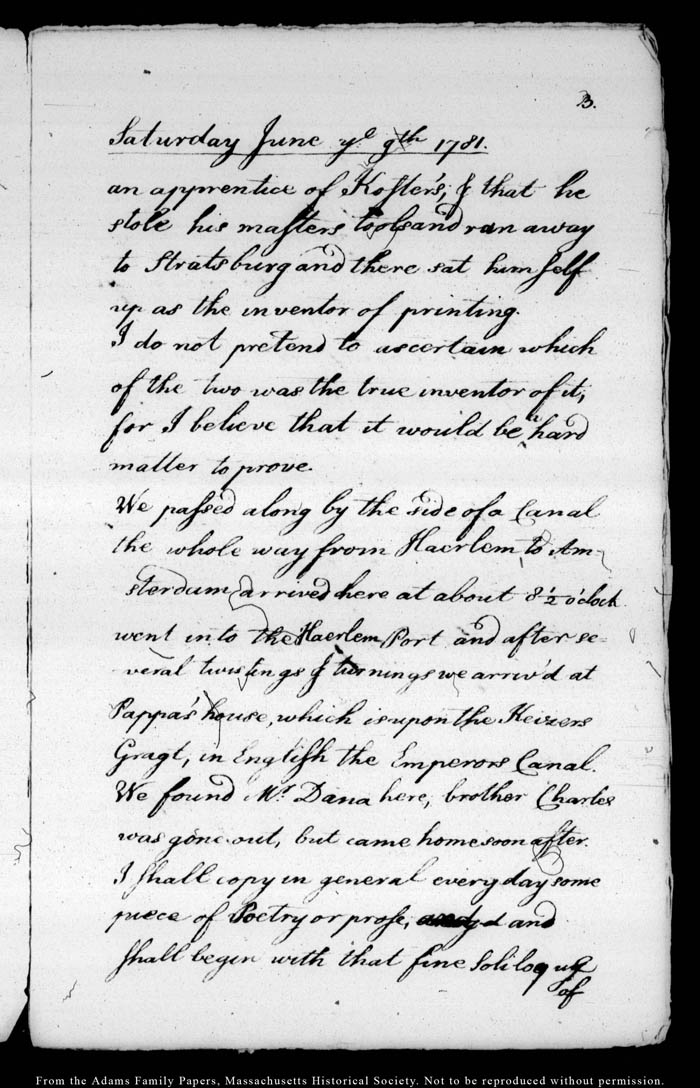 3.
Saturday June ye. 9th 1781.
an apprentice of Koster's, & that he
stole his masters tools and ran away
to Stratsburg and there sat himself
up as the inventor of printing.
I do not pretend to ascertain which
of the two was the true inventor of it;
for I believe that it would be a hard
matter to prove.
We passed along by the side of a Canal
the whole way from Haerlem to Am-
sterdam, arrived here at about 8 1/2 o'clock
went into the Haerlem Port and after se-
veral twistings & turnings we arriv'd at
Pappa's house, which is upon the Keizers
Gragt, in English the Emperors Canal.
We found Mr. Dana here, brother Charles
was gone out, but came home soon after.
I shall copy in general every day some
piece of Poetry or prose, and
shall begin with that fine Soliloquy
of
From the Adams Family Papers, Massachusetts Historical Society. Not to be reproduced without permission.